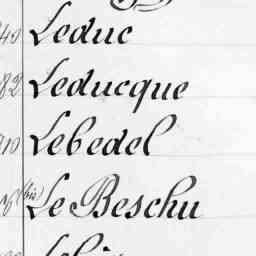 Leduc
82 Leducque
Lebedel
(bis) Le Beschu